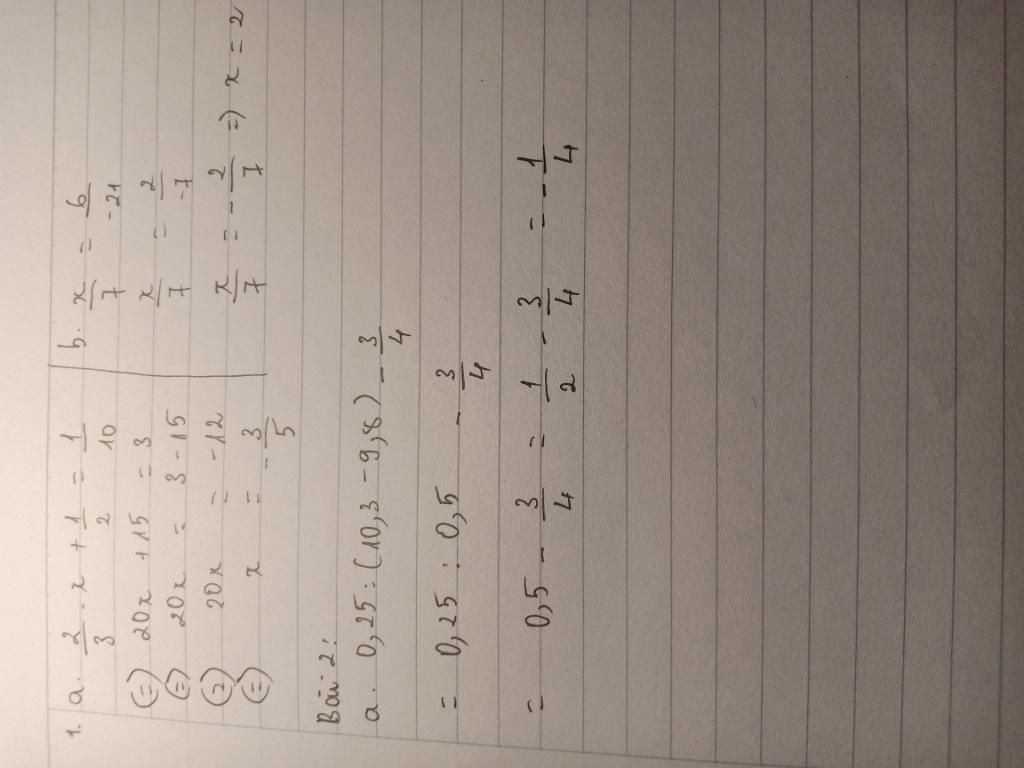 1. a. 2/3 · x + 1/2 = 1/10
(=) 20x + 15 = 3
(=) 20x = 3 - 15
(=) 20x = -12
(=) x = -3/5
b. x/7 = 6/-21
x/7 = 2/-7
x/7 = -2/7 => x = 2
Bài 2:
a. 0,25 : (10,3 - 9,8) - 3/4
= 0,25 : 0,5 - 3/4
= 0,5 - 3/4 = 1/2 - 3/4 = -1/4